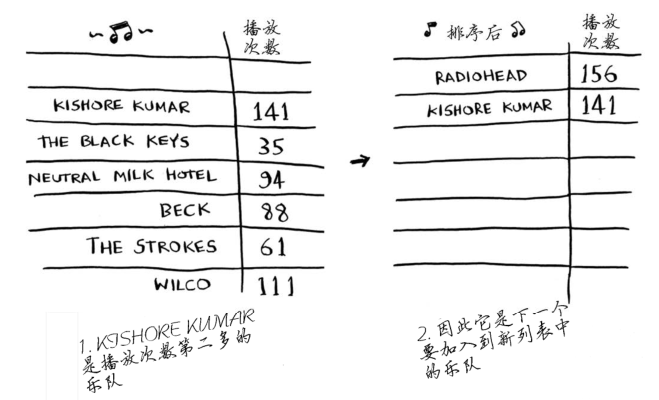 播放
次数
KISHORE KUMAR 141
THE BLACK KEYS 35
NEUTRAL MILK HOTEL 94
BECK 88
THE STROKES 61
WILCO 111
1. KISHORE KUMAR
是播放次数第二多的
乐队
排序后
播放
次数
RADIOHEAD 156
KISHORE KUMAR 141
2. 因此它是下一个
要加入到新列表中
的乐队